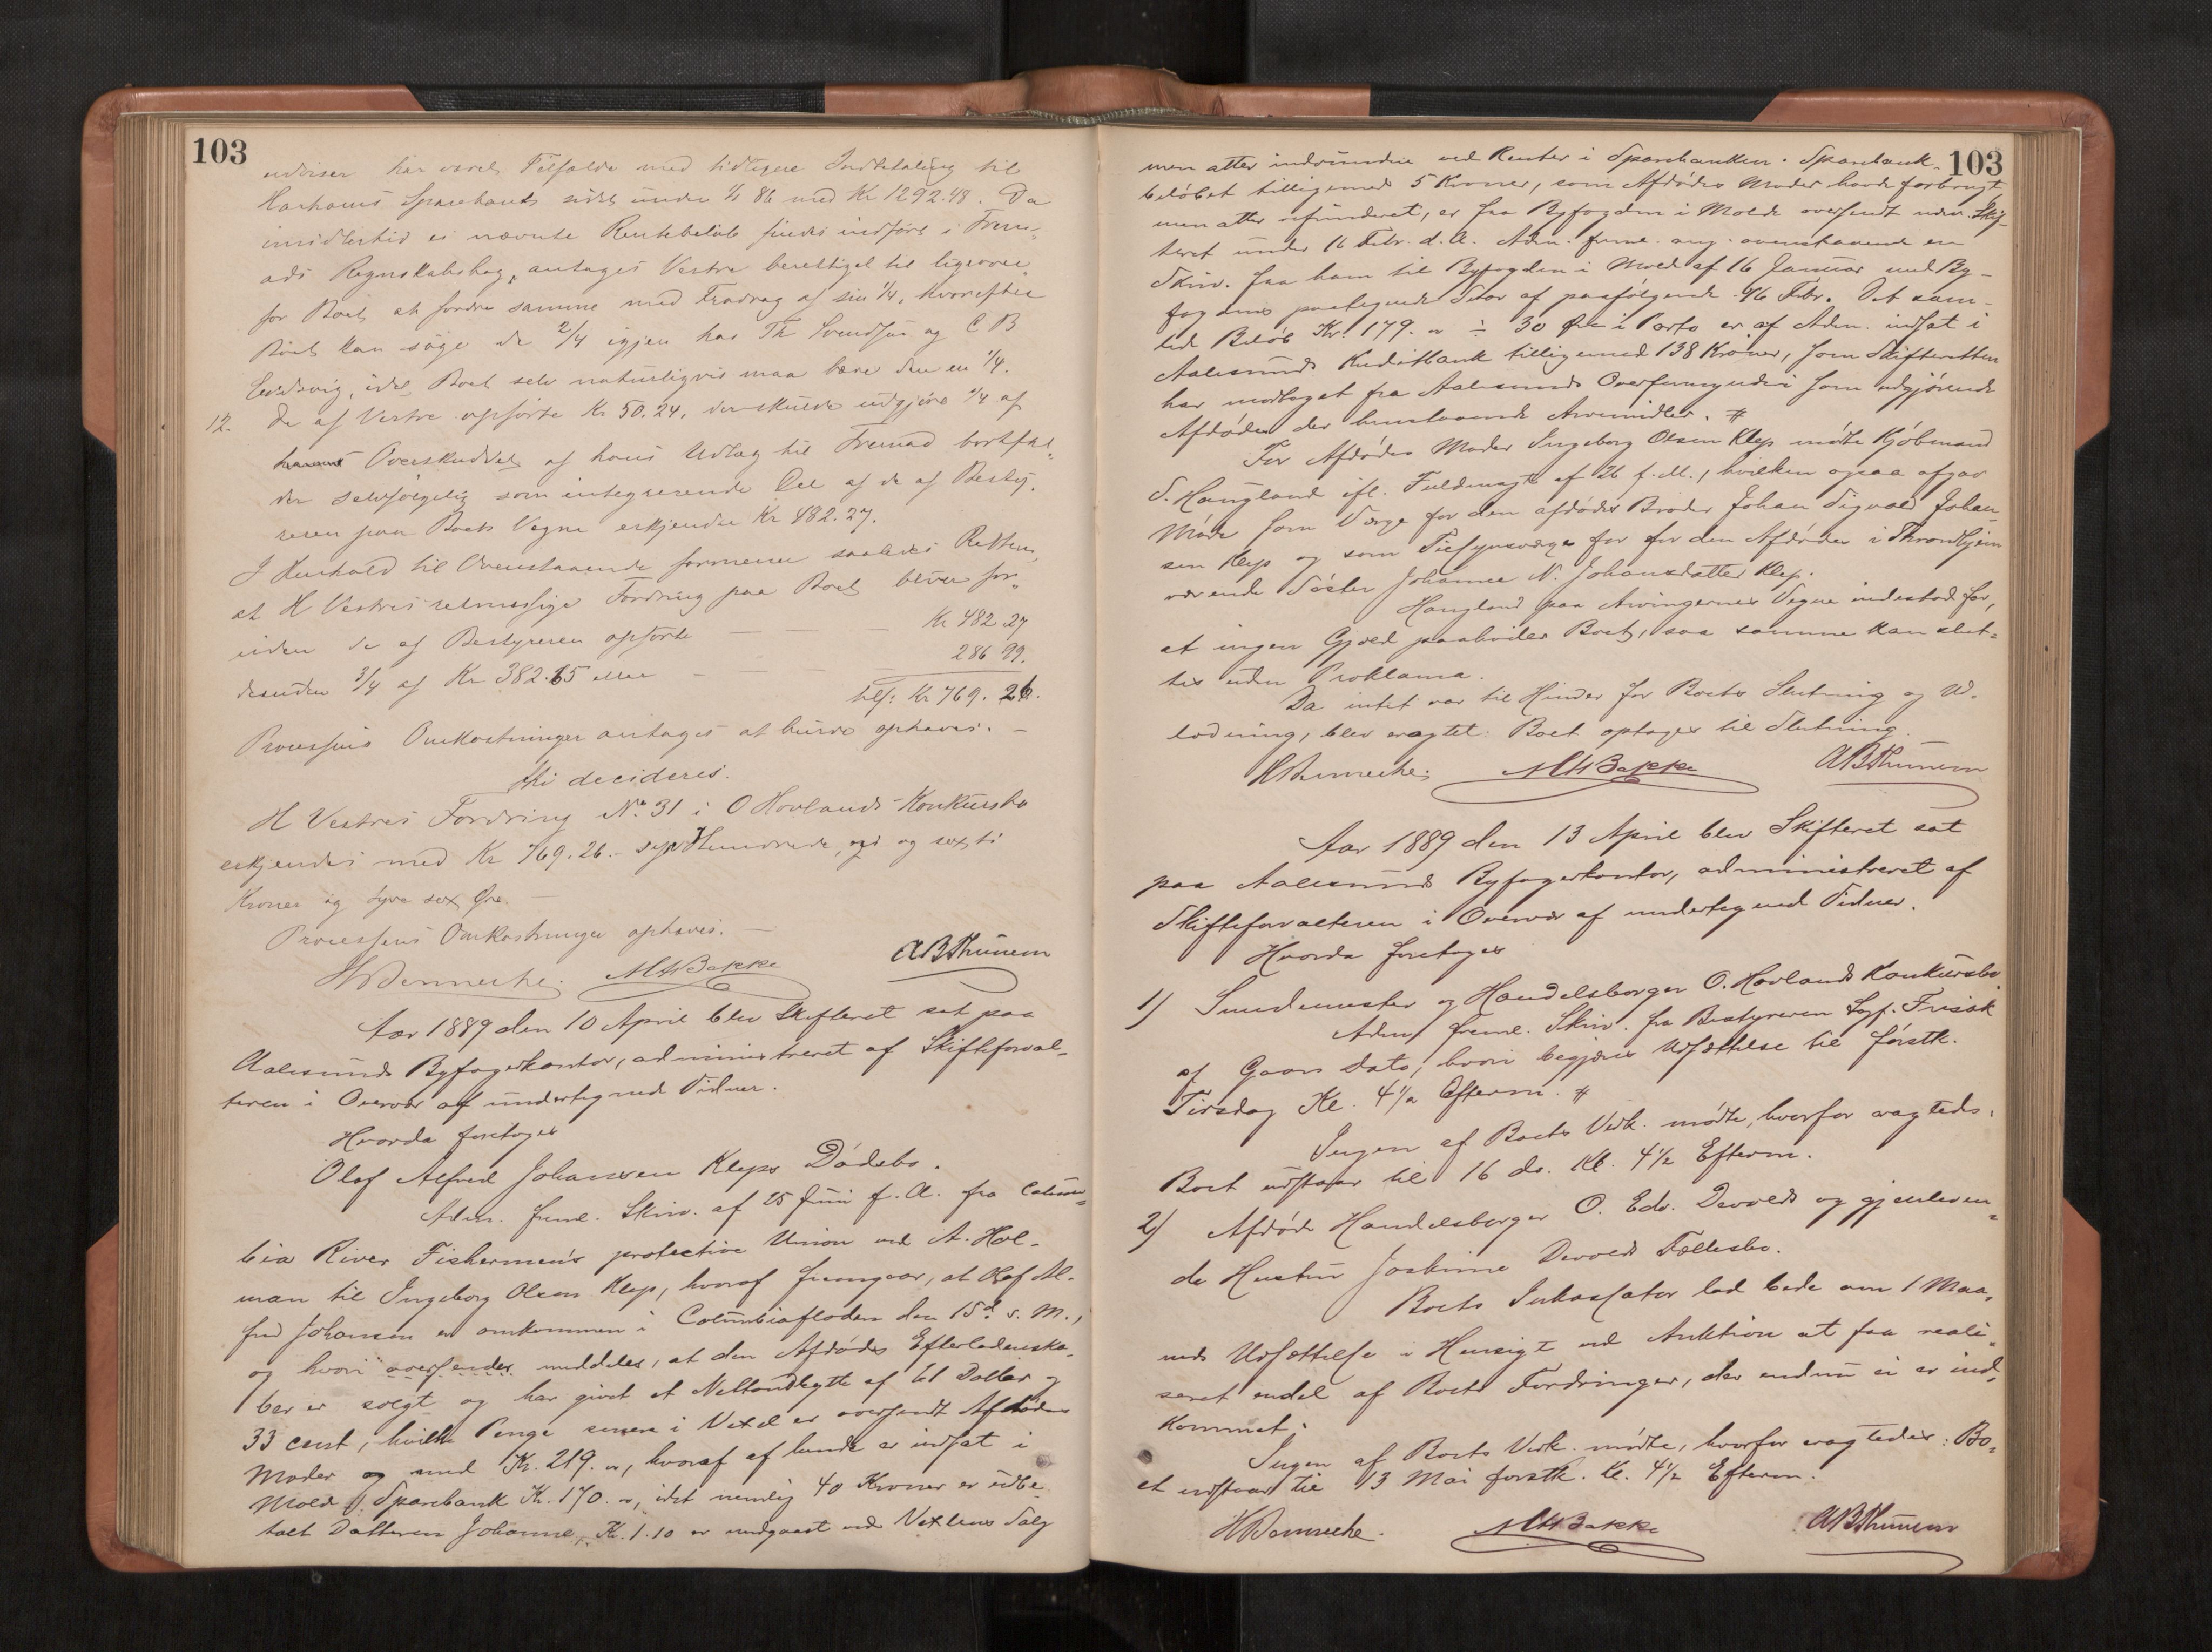 103
udviser har været Tilfælde med tidligere Indbetaling til
Harhams Sparebank sidst under 1/4 86 med Kr 1292.48. Da
imidlertid ei nævnte Rentebeløb findes indført i Frem-
ads Regnskabsbog, antages Vestre berettiget til ligeover
for Boet at fordre samme med Fradrag af sin 1/4, hvorefter
Boet kan søge de 2/4 igjen hos Th Svendsen og C B
Leidvig, idet Boet selv naturligvis maa bære den en 1/4.
12. De af Vestre opførte Kr 50.24, der skulde udgjøre 1/4 af
Overskuddet af hans Udlag til Fremad bortfal-
der selvfølgelig som integrerende Del af de af Besty-
reren paa Boets Vegne erkjendte Kr 482.27.
I Henhold til Ovenstaaende formener saaledes Retten,
at H Vestres retmæssige Fordring paa Boet bliver for-
uden de af Bestyreren opførte — — — Kr 482 27
desuden 3/4 af Kr 382.65 eller — — — 286 99.
tils: Kr 769. 26.
Processens Omkostninger antages at burde ophæves. —
Thi decideres.
H Vestres Fordring No. 31 i O Hovlands Konkursbo
erkjendes med Kr 769.26.- syv Hundrede, ni og sexti
Kroner og tyve sex Øre. —
Processens Omkostninger ophæves. —
MHBakke ABThunem
Aar 1889 den 10 April blev Skifteret sat paa
Aalesunds Byfogedkontor, administreret af Skifteforval-
teren i Overvær af undertegned Vidner.
Hvorda foretoges
Olaf Alfred Johansen Kleps Dødsbo.
Adm. freml. Skriv. af 25 Juni f. A. fra Colum-
bia River Fishermen's protective Union ved A. Hol-
man til Ingeborg Olsen Klep, hvoraf fremgaar, at Olaf Al-
fred Johansen er omkommen i Columbiafloden den 15de s. M.,
og hvori oversendes meddeles, at den Afdødes Efterladenska-
ber er solgt og har givet et Nettoudbytte af 61 Dollar og
33 cent, hvilke Penge senere i Vexel er oversendt Afdødes
Moder og med Kr. 219. „, hvoraf af hende er indsat i
Molde Sparebank Kr. 170. „, idet nemlig 40 Kroner er udbe-
talt Datteren Johanne, Kr. 1.10 er medgaaet ved Vexlens Salg
103
men atter indvundne ved Renter i Sparebanken. Sparebank-
beløbet tilligemed 5 Kroner, som Afdødes Moder havde forbrugt
men atter refunderet, er fra Byfogden i Molde oversendt Skif-
teret under 16 Febr. d. A. Adm. freml. ang. ovenstaaende en
Skriv. fra ham til Byfogden i Molde af 16 Januar med By-
fogdens paategnede Svar af paafølgende 16 Febr. Det sam-
lede Beløb Kr. 179. „ ÷ 30 Øre i Porto er af Adm. indsat i
Aalesunds Kreditbank tilligemed 138 Kroner, som Skifteretten
har modtaget fra Aalesunds Overformynderi som udgjørende
Afdødes der henstaaende Arvemidler. #
For Afdødes Moder Ingeborg Olsen Klep mødte Kjøbmand
S. Haugland ifl. Fuldmagt af 26 f. M., hvilken ogsaa afgav
Møde som Værge for den afdødes Broder Johan Sigvald Johan-
sen Klep og som Tilsynsværge for for den Afdødes i Throndhjem
værende Søster Johanne N. Johansdatter Klep.
Haugland paa Arvingernes Vegne indestod for,
at ingen Gjæld paahviler Boet, saa samme kan slut-
tes uden Proklama.
Da intet var til Hinder for Boets Slutning og Ud-
lodning, blev eragtet: Boet optages til Slutning.
MHBakke ABThunem
Aar 1889 den 13 April blev Skifteret sat
paa Aalesunds Byfogedkontor, administreret af
Skifteforvalteren i Overvær af undertegned Vidner.
Hvorda foretoges
1) Smedemester og Handelsborger O. Hovlands Konkursbo
Adm. freml. Skriv. fra Bestyreren Sagf. Frisak
af Gaars Dato, hvori begjæres Udsættelse til førstk.
Tirsdag Kl. 4 1/2 Efterm. #
Ingen af Boets Vedk. mødte, hvorfor eragteds:
Boet udstaar til 16 ds. Kl. 4 1/2 Efterm.
2) Afdøde Handelsborger O. Edv. Devolds og gjenleven-
de Hustru Joakime Devolds Fællesbo.
Boets Inkassator lod bede om 1 Maa-
neds Udsættelse i Hensigt ved Auktion at faa reali-
seret endel af Boets Fordringer, der endnu ei er ind-
kommet.
Ingen af Boets Vedk. mødte, hvorfor eragtedes: Bo-
et udstaar til 13 Mai førstk. Kl. 4 1/2 Efterm.
MHBakke ABThunem